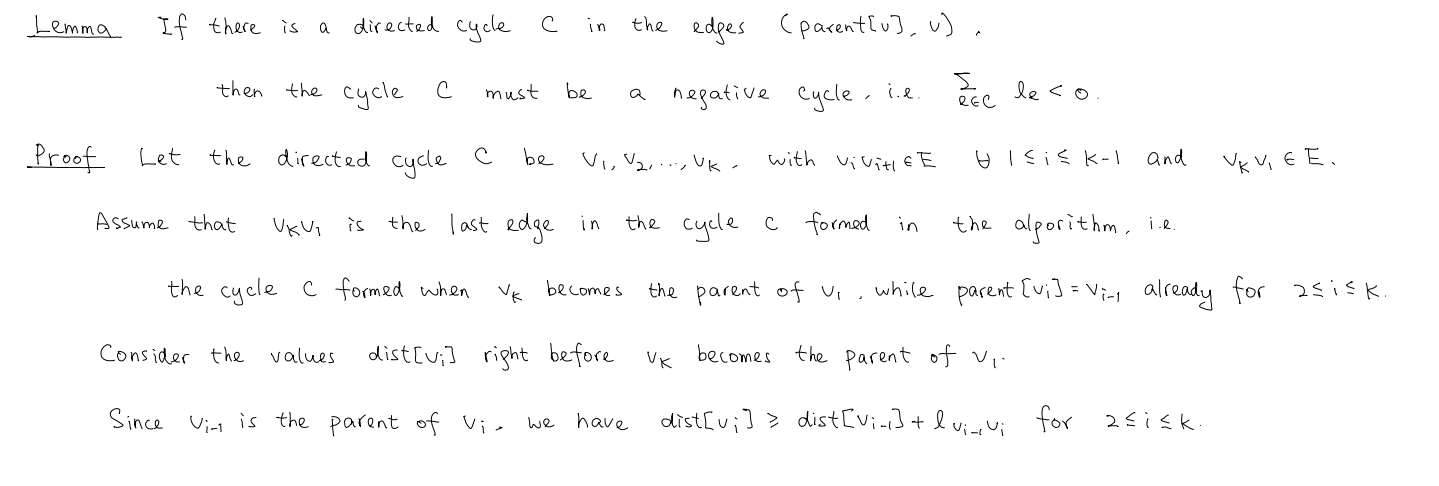 Lemma If there is a directed cycle C in the edges (parent[v], v),
then the cycle C must be a negative cycle, i.e. ∑_{e∈C} l_e < 0.
Proof Let the directed cycle C be v₁, v₂, ..., v_k, with v_i v_{i+1} ∈ E ∀ 1 ≤ i ≤ k-1 and v_k v₁ ∈ E.
Assume that v_k v₁ is the last edge in the cycle C formed in the algorithm, i.e.
the cycle C formed when v_k becomes the parent of v₁, while parent[v_i] = v_{i-1} already for 2 ≤ i ≤ k.
Consider the values dist[v_i] right before v_k becomes the parent of v₁.
Since v_{i-1} is the parent of v_i, we have dist[v_i] ≥ dist[v_{i-1}] + l_{v_{i-1} v_i} for 2 ≤ i ≤ k.